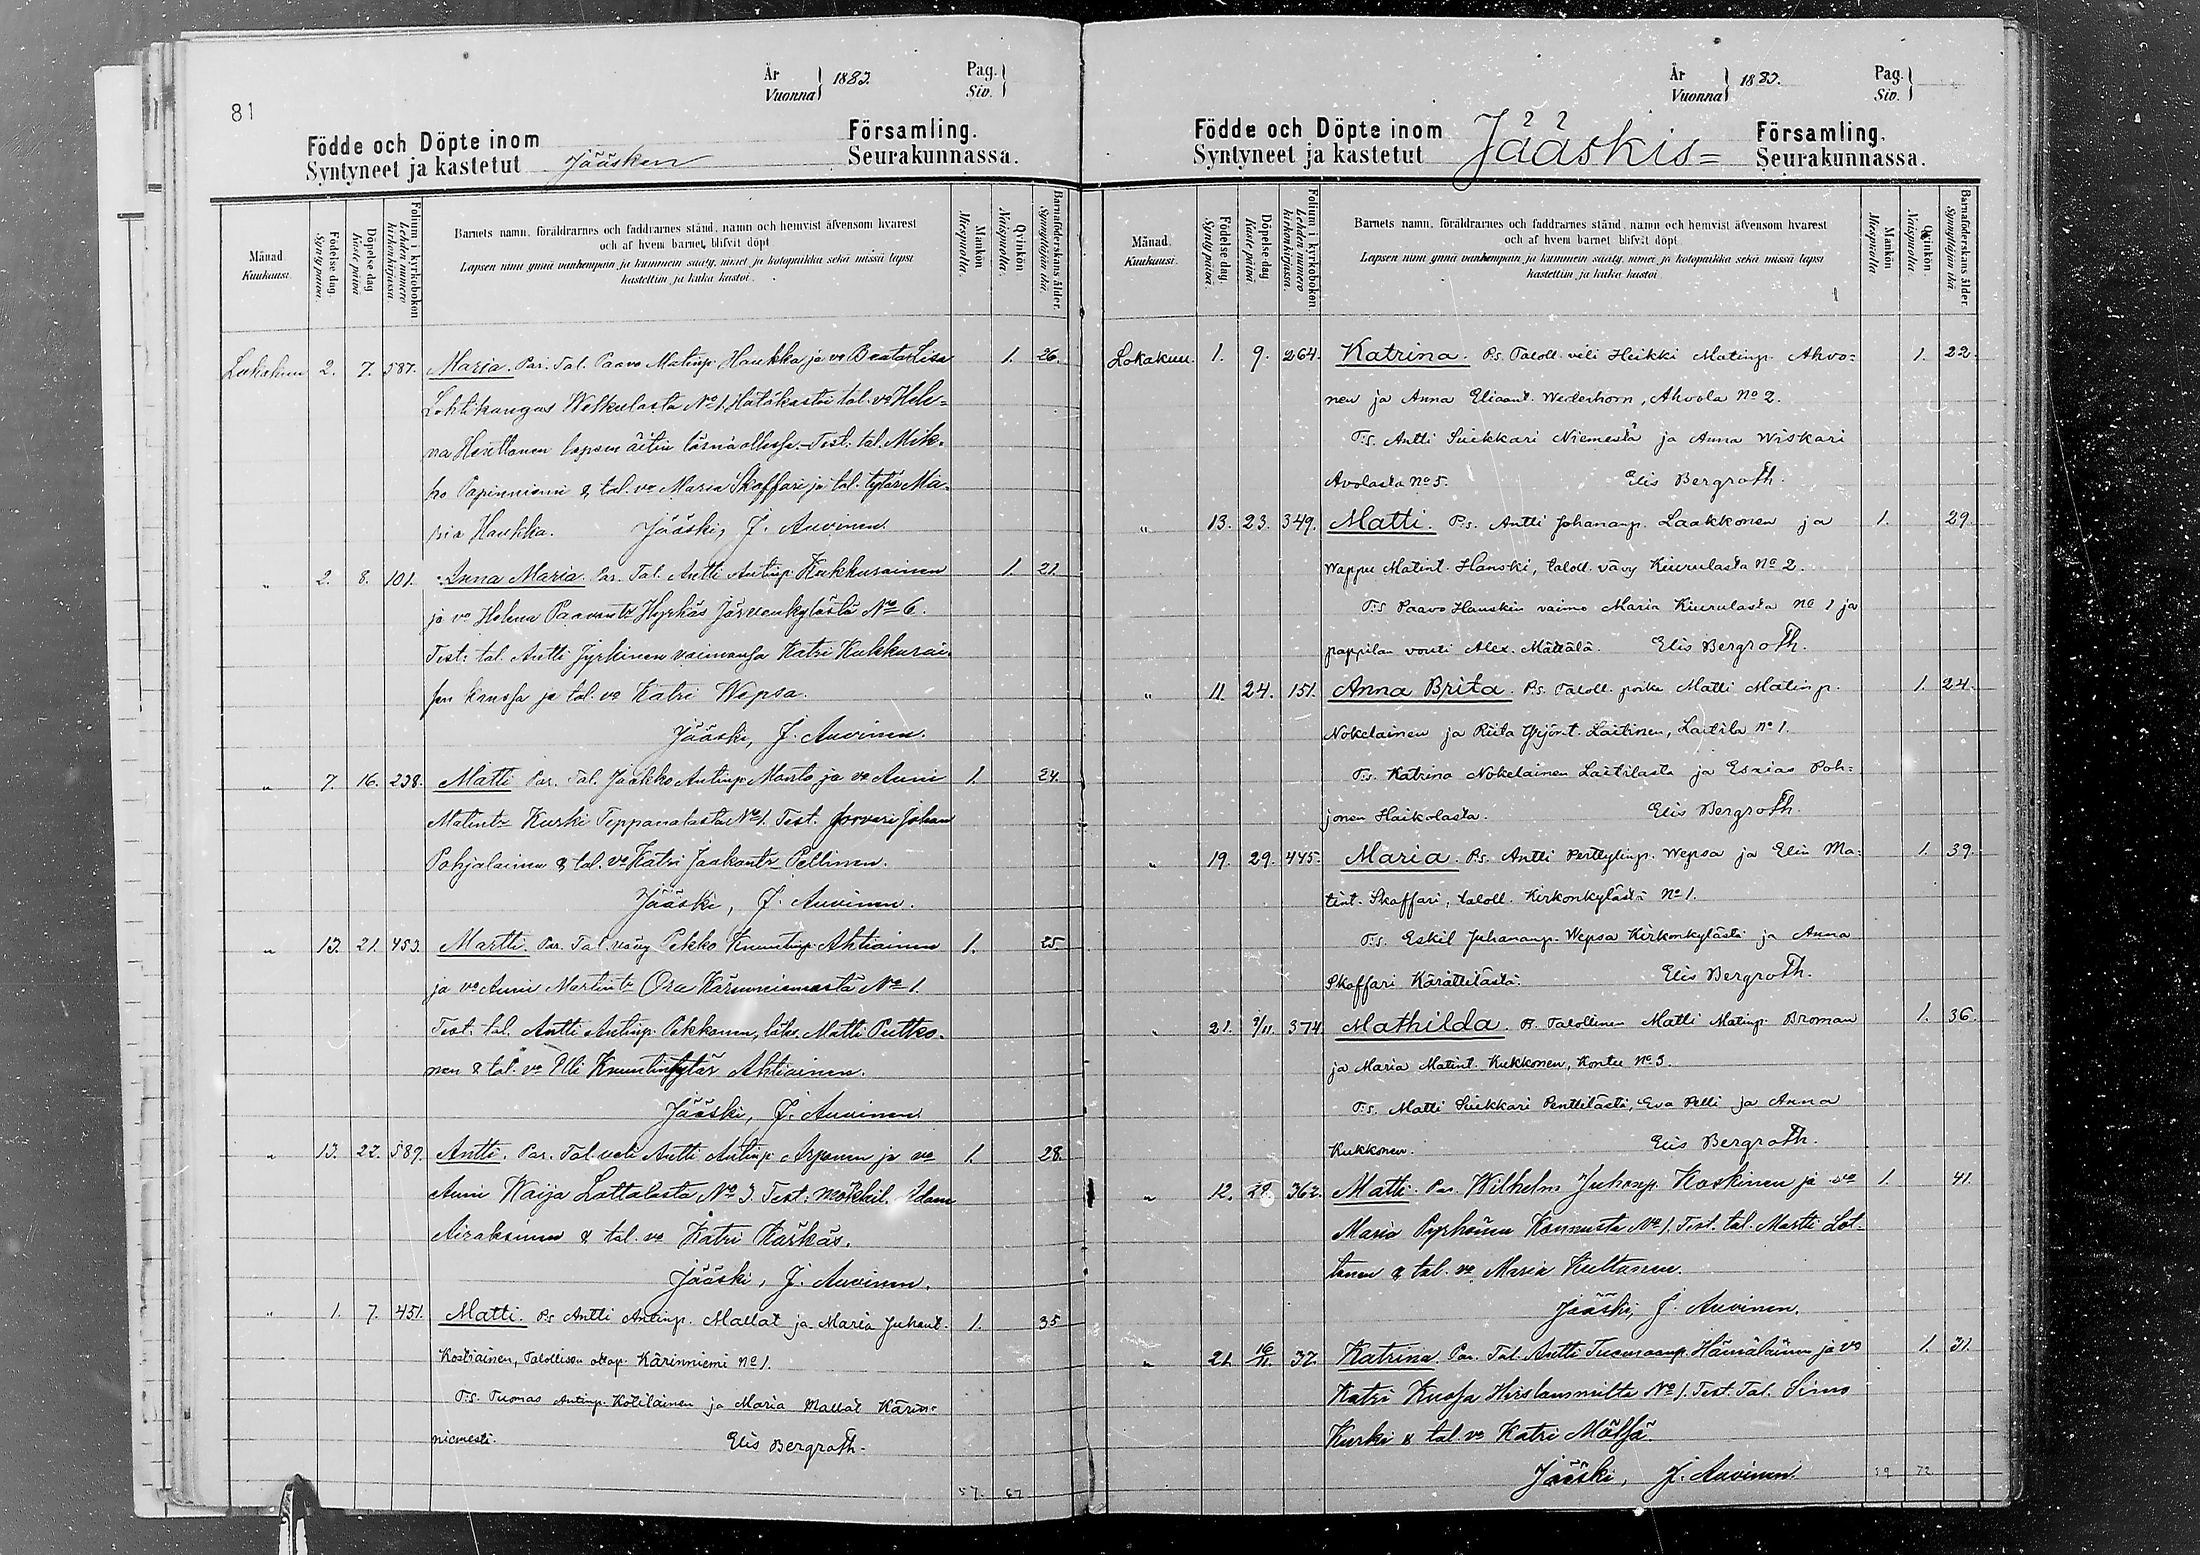 81
År
Vuonna
1883.
Pag.
Siv.
Födde och Döpte inom
Syntyneet ja kastetut
Jääsken
Församling.
Seurakunnassa.
Månad
Kuukausi.
Födelse dag.
Syntypäivä.
Döpelse dag
Kaste päivä
Folium i kyrkoboken
Lehden numero kirkonkirjassa.
Barnets namn, föräldrarnes och faddrarnes stånd, namn och hemvist äfvensom hvarest
och af hvem barnet blifvit döpt
Lapsen nimi ynnä vanhempain ja kummein sääty, nimet ja kotopaikka sekä missä lapsi
kastettiin ja kuka kastoi.
Mankön
Miespuolia.
Qvinkön
Naispuolia.
Barnaföderskans ålder.
Synnyttäjän ikä
Lokakuu 2. 7. 587. Maria. Par. Tal. Paavo Matinp. Haukka ja vo Beata Liisa 1. 26.
Lohikangas Wolkulasta No 1, Hätäkastoi tal. vo Hele-
na Honttonen lapsen äitin läsnä ollessa. Test. tal. Mik-
ko Papinniemi & tal. vo Maria Skaffari ja tal. tytär Ma-
ria Haukka. Jääski, J. Auvinen.
" 2. 8. 101. Anna Maria. Par. Tal. Antti Antinp. Kukkurainen 1. 21.
ja vo Helena Paavontr Hyrkäs Järvenkylästä No 6.
Test: tal. Antti Jyrkinen vaimonsa Katri Kukkurai-
sen kanssa ja tal. vo Katri Wepsa.
Jääski, J. Auvinen.
" 7. 16. 238. Matti Par. Tal. Jaakko Antinp. Manto ja vo Anni 1. 24.
Matintr Kurki Teppanalasta No 1. Test. torvari Johan
Pohjalainen & tal. vo Katri Jaakontr Pellinen.
Jääski, J. Auvinen.
" 13. 21. 453. Martti. Par. Tal. vävy Pekko Knuutinp. Ahtiainen 1. 25
ja vo Anni Martintr Ora Kärinniemestä No 1.
Test: tal. Antti Antinp. Pekkonen, lois. Matti Puttko-
nen & tal. vo Elli Knuutintytär Ahtiainen.
Jääski, J. Auvinen
" 13. 22. 589. Antti. Par. Tal. veli Antti Antinp. Arponen ja vo 1. 28.
Anni Waija Lottolasta No 3. Test: mökkil. Adam
Airaksinen & tal. vo Katri Kärkäs.
Jääski, J. Auvinen.
" 1. 7. 451. Matti. Ps Antti Antinp. Mallat ja Maria Juhant. 1. 35
Kostiainen, Talollisen ottop. Kärinniemi No 1.
T:s. Tuomas Antinp. Kotilainen ja Maria Mallat Kärin-
niemestä. Elis Bergroth.
57. 67
År
Vuonna
1883.
Pag.
Siv.
Födde och Döpte inom
Syntyneet ja kastetut
Jääskis=
Församling.
Seurakunnassa.
Månad.
Kuukausi.
Födelse dag.
Syntypäivä.
Döpelse dag.
Kaste päivä
Folium i kyrkoboken.
Lehden numero kirkonkirjassa.
Barnets namn, föräldrarnes och faddrarnes stånd, namn och hemvist äfvensom hvarest
och af hvem barnet blifvit döpt
Lapsen nimi ynnä vanhempain ja kummein sääty, nimet ja kotopaikka sekä missä lapsi
kastettiin ja kuka kastoi.
Mankön
Miespuolia
Qvinkön.
Naispuolia.
Barnaföderskans ålder.
Synnyttäjän ikä
Lokakuu. 1. 9. 264. Katrina. Ps. Taloll. veli Heikki Matinp. Ahvo= 1. 22.
nen ja Anna Eliaant. Werlenhorn, Ahvola No 2.
T:s. Antti Suikkari Niemestä ja Anna Wiskari
Avolasta No 5. Elis Bergroth.
" 13. 23. 349. Matti. Ps. Antti Johananp. Laakkonen ja 1. 29.
Wappu Matint. Hanski, taloll. vävy Kiurulasta No 2.
T:s Paavo Hanskin vaimo Maria Kiurulasta No 1 ja
pappilan vouti Alex. Mättälä. Elis Bergroth.
" 11. 24. 151. Anna Brita. Ps. Taloll. poika Matti Matinp. 1. 24.
Nokelainen ja Riita Yrjönt. Laitinen, Laitila No 1.
T:s. Katrina Nokelainen Laitilasta ja Esaias Poh=
jonen Haikolasta. Elis Bergroth.
" 19. 29. 445. Maria. Ps. Antti Perttylinp. Wepsa ja Elin Ma= 1. 39.
tint. Skaffari, taloll. Kirkonkylästä No 1.
T:s. Eskil Juhananp. Wepsa Kirkonkylästä ja Anna
Skaffari Kärättilästä. Elis Bergroth.
" 21. 9/11. 374 Mathilda. Ps. Talollinen Matti Matinp. Broman 1. 36.
ja Maria Matint. Kukkonen, Kontu No 3.
T:s. Matti Suikkari Penttilästä, Eva Pelli ja Anna
Kukkonen. Elis Bergroth.
" 12. 28. 362. Matti. Par. Wilhelm Juhonp. Koskinen ja vo 1. 41.
Maria Pyrhönen Konnusta No 1. Test. tal. Martti Lot-
tonen & tal. vo Maria Kultanen.
Jääski, J. Auvinen.
" 21. 16/11. 37. Katrina. Par. Tal. Antti Tuomaanp. Hämäläinen ja vo 1. 31.
Katri Kuosa Hirslammilta No 1. Test. Tal. Simo
Kurki & tal. vo Katri Mälsä.
Jääski, J. Auvinen
59 72